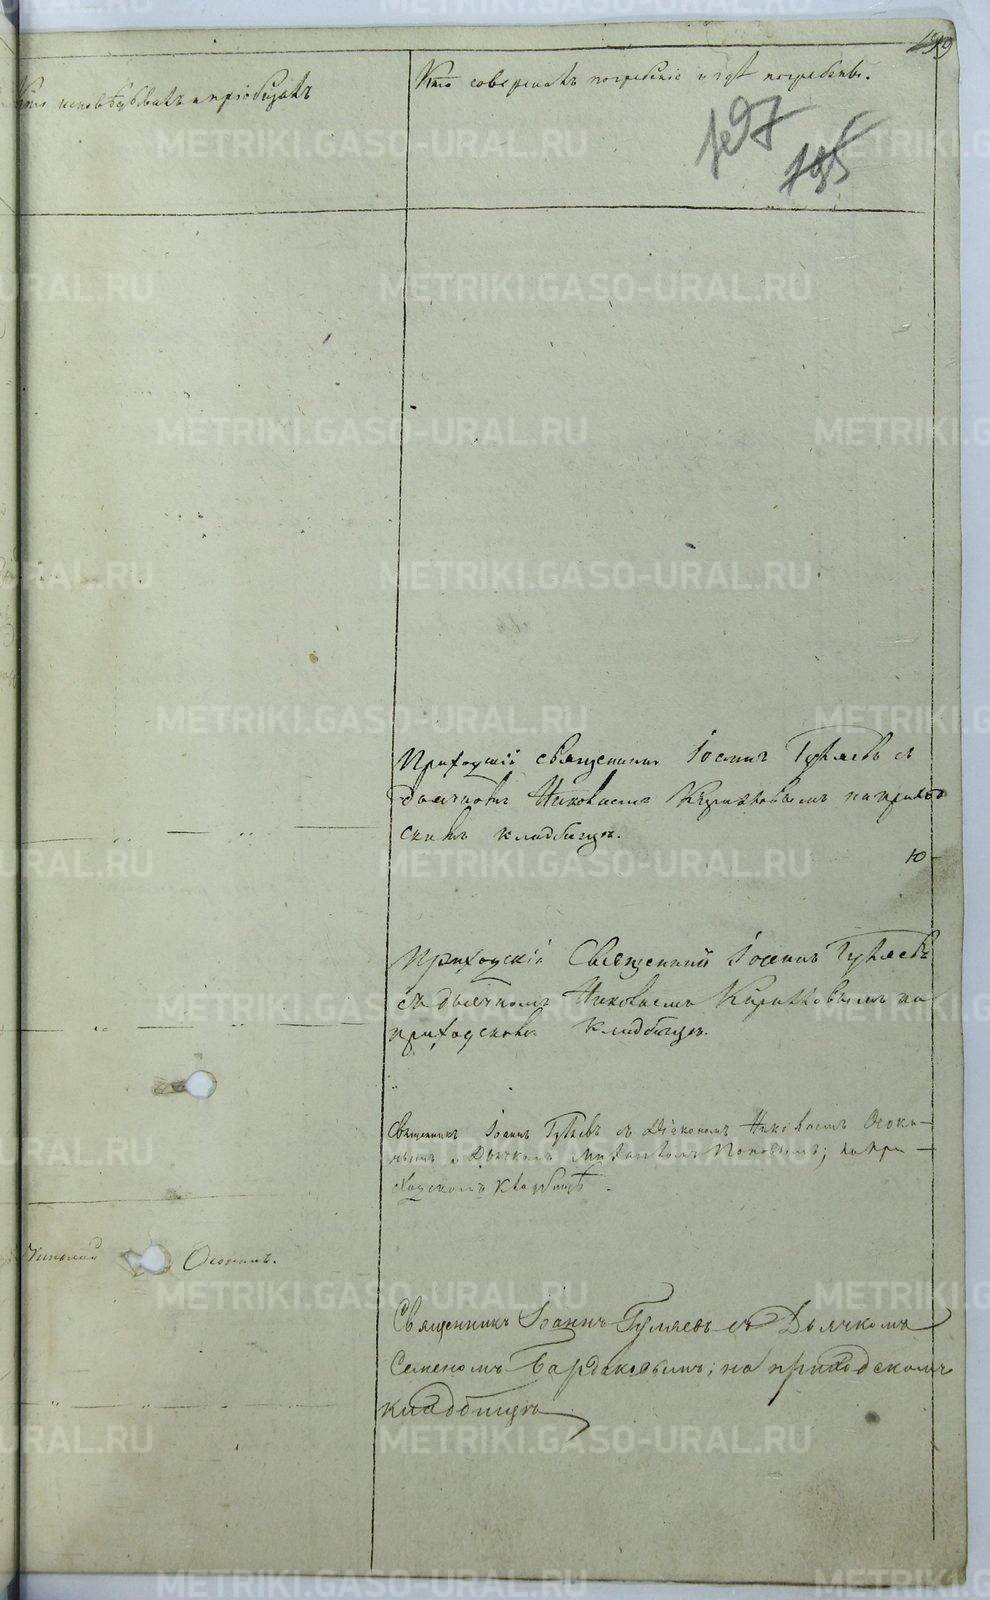 199
Кто исповѣдывалъ и пріобщалъ
Кто совершалъ погребеніе и гдѣ погребены.
197
195
Приходскій священникъ Іоаннъ Гуляевъ съ
дьячкомъ Николаемъ на приход
скомъ кладбищѣ.
Ю
Приходскій Священникъ Іоаннъ Гуляевъ
съ дьячкомъ Николаемъ на
приходскомъ кладбищѣ.
Священникъ Іоаннъ Гуляевъ съ Діакономъ Николаемъ Осоки-
нымъ и Дьячкомъ Поповымъ; на при-
ходскомъ кладбищѣ.
Николай Осокинъ.
Священникъ Іоаннъ Гуляевъ съ Дьячкомъ
Семеномъ Бардаковымъ; на приходскомъ
кладбищѣ
METRIKI.GASO-URAL.RU